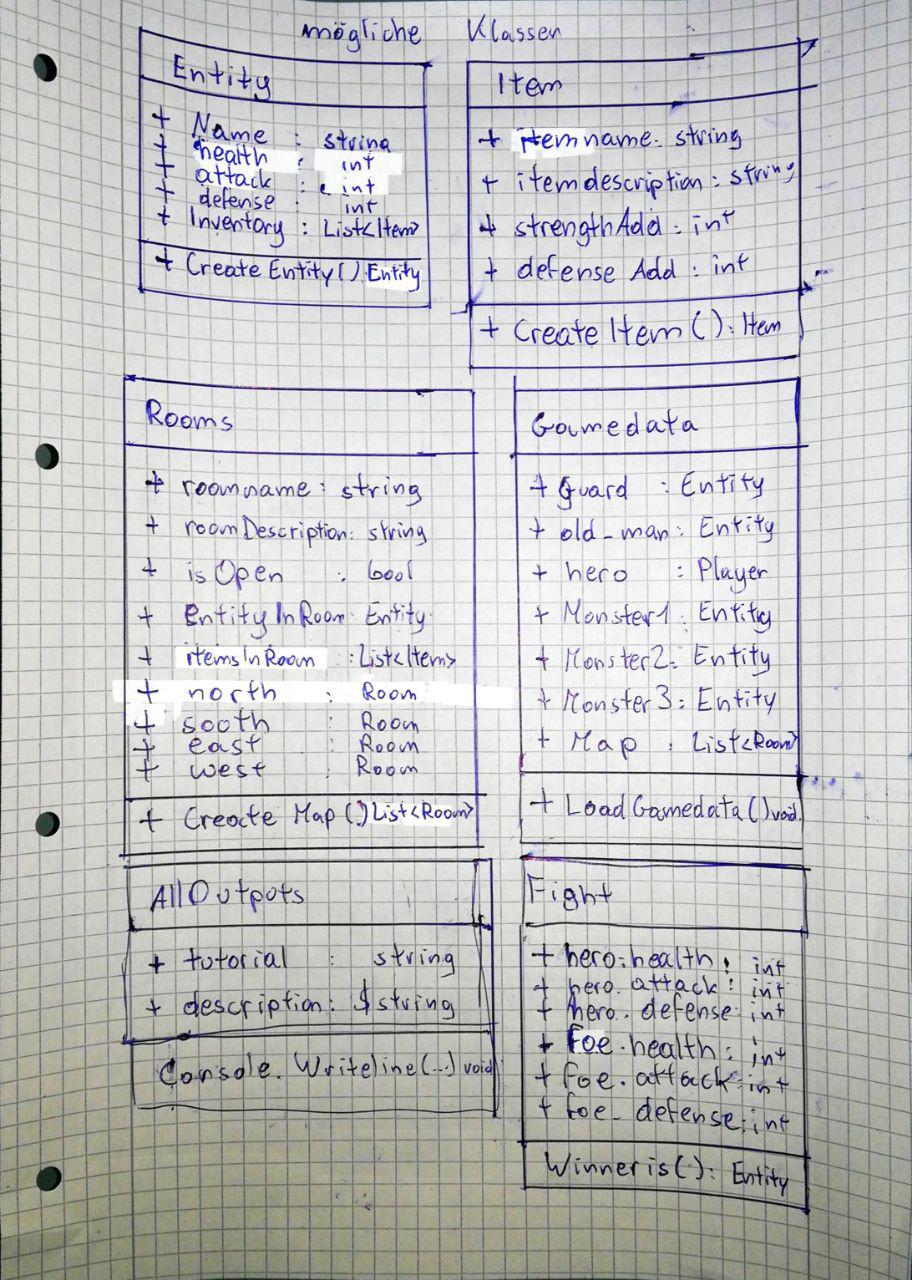 mögliche Klassen
Entity
+ Name : string
+ health : int
+ attack : int
+ defense : int
+ Inventory : List<Item>
+ Create Entity() : Entity
Item
+ itemname : string
+ itemdescription : string
+ strengthAdd : int
+ defense Add : int
+ Create Item() : Item
Rooms
+ roomname : string
+ roomDescription : string
+ isOpen : bool
+ EntityInRoom : Entity
+ itemsInRoom : List<Item>
+ north : Room
+ sooth : Room
+ east : Room
+ west : Room
+ Create Map() List<Room>
Gamedata
+ Guard : Entity
+ old_man : Entity
+ hero : Player
+ Monster1 : Entity
+ Monster2 : Entity
+ Monster3 : Entity
+ Map : List<Room>
+ LoadGamedata() void
All Outpots
+ tutorial : string
+ description : string
Console.Writeline(...) void
Fight
+ hero.health : int
+ hero.attack : int
+ hero.defense : int
+ foe.health : int
+ foe.attack : int
+ foe.defense : int
Winner is() : Entity